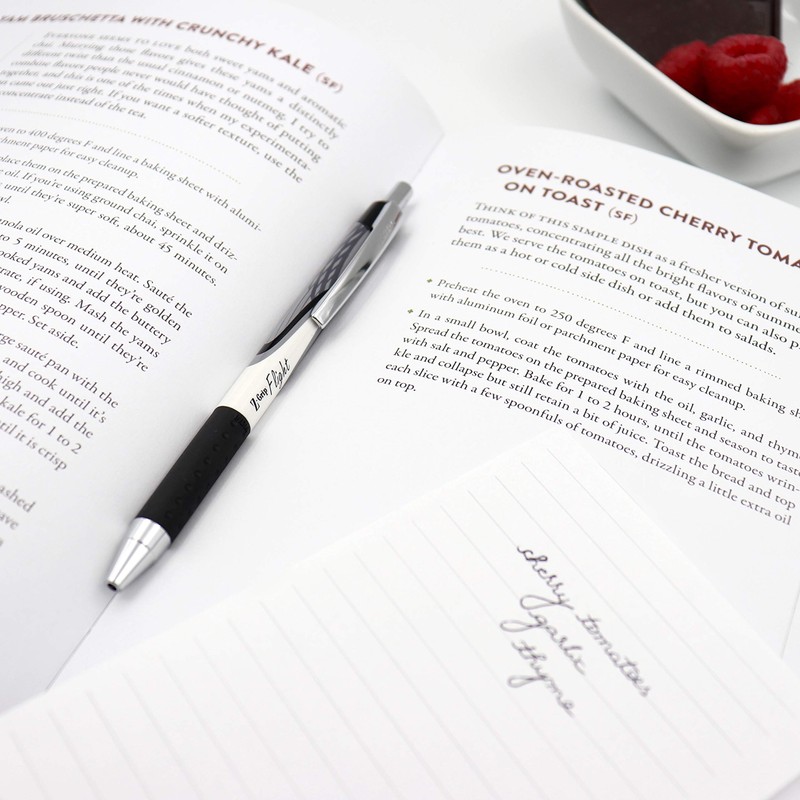 YAM BRUSCHETTA WITH CRUNCHY KALE (SF)
EVERYONE SEEMS TO LOVE both sweet yams and aromatic
chai. Marrying those flavors gives these yams a distinctly
different twist than the usual cinnamon or nutmeg. I try to
combine flavors people never would have thought of putting
together, and this is one of the times when my experimenta-
came out just right. If you want a softer texture, use the
concentrate instead of the tea.
oven to 400 degrees F and line a baking sheet with alumi-
parchment paper for easy cleanup.
place them on the prepared baking sheet and driz-
oil. If you're using ground chai, sprinkle it on
until they're super soft, about 45 minutes.
oil over medium heat. Sauté the
to 5 minutes, until they're golden
yams and add the buttery
if using. Mash the yams
wooden spoon until they're
pepper. Set aside.
sauté pan with the
and cook until it's
high and add the
kale for 1 to 2
until it is crisp
OVEN-ROASTED CHERRY TOMA
ON TOAST (SF)
THINK OF THIS SIMPLE DISH as a fresher version of su
tomatoes, concentrating all the bright flavors of summe
best. We serve the tomatoes on toast, but you can also p
them as a hot or cold side dish or add them to salads.
Preheat the oven to 250 degrees F and line a rimmed baking sh
with aluminum foil or parchment paper for easy cleanup.
In a small bowl, coat the tomatoes with the oil, garlic, and thym
Spread the tomatoes on the prepared baking sheet and season to taste
with salt and pepper. Bake for 1 to 2 hours, until the tomatoes wrin-
kle and collapse but still retain a bit of juice. Toast the bread and top
each slice with a few spoonfuls of tomatoes, drizzling a little extra oil
on top.
Z-Grip Flight
cherry tomatoes
garlic
thyme